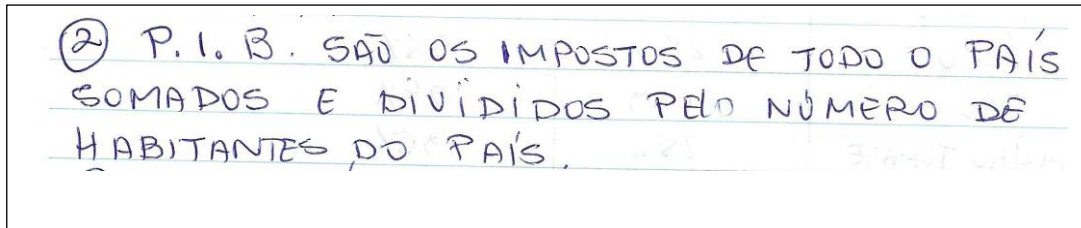 ② P.I.B. SÃO OS IMPOSTOS DE TODO O PAÍS
SOMADOS E DIVIDIDOS PELO NÚMERO DE
HABITANTES DO PAÍS.